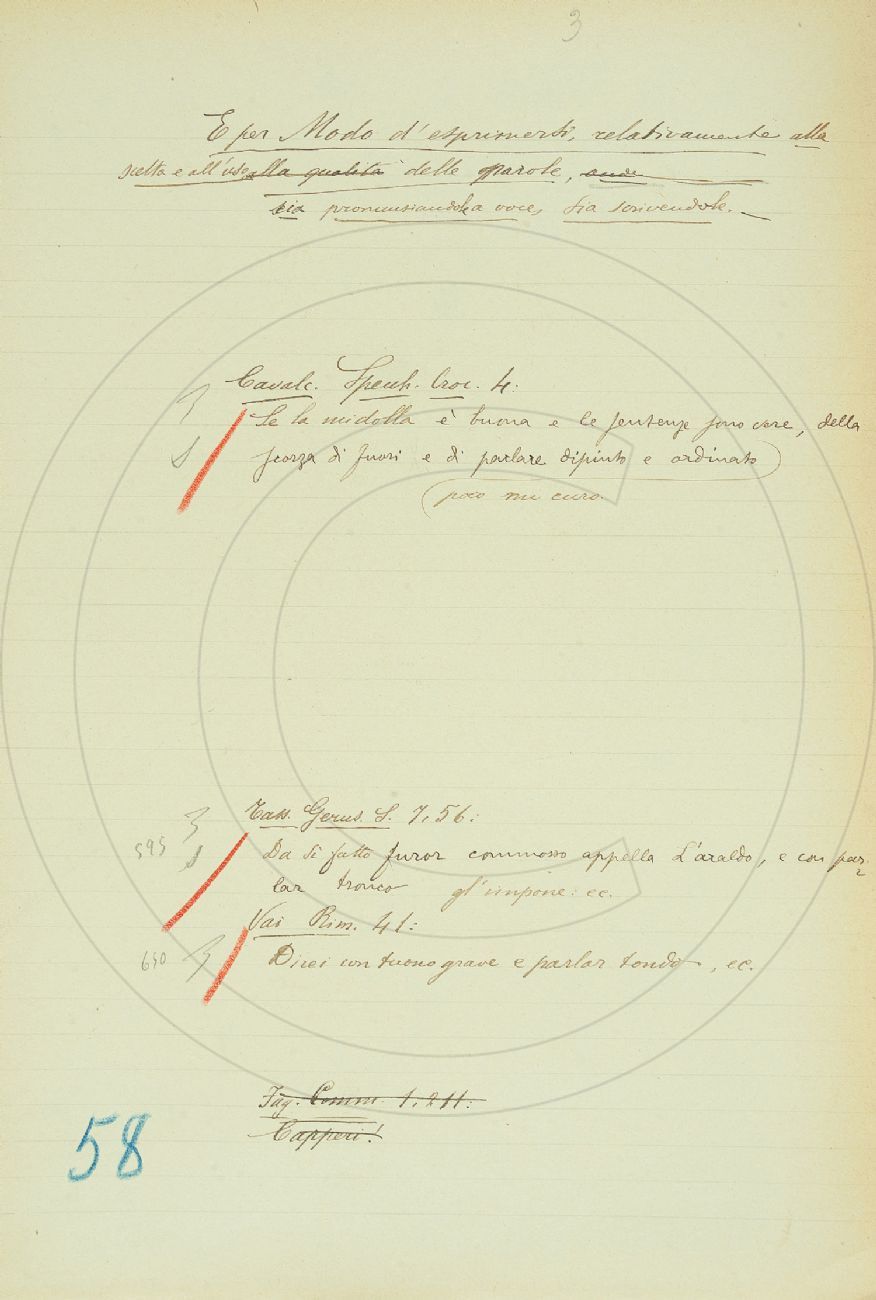 3
E per Modo d'esprimersi, relativamente alla
scelta e all'uso alla qualità delle parole, onde
sia pronunziandole a voce, sia scrivendole.
Cavalc. Specch. Croc. 4:
Se la midolla è buona e le sentenze sono vere, della
scorza di fuori e di parlare dipinto e ordinato
poco mi curo.
Tass. Gerus. L. 7, 56:
595
Da sì fatto furor commosso appella L'araldo, e con par-
lar tronco gl'impone: ec.
Vai Rim. 41:
690
Dicei con tuono grave e parlar tondo, ec.
Fag. Comm. 1, 211:
Capperi!
58